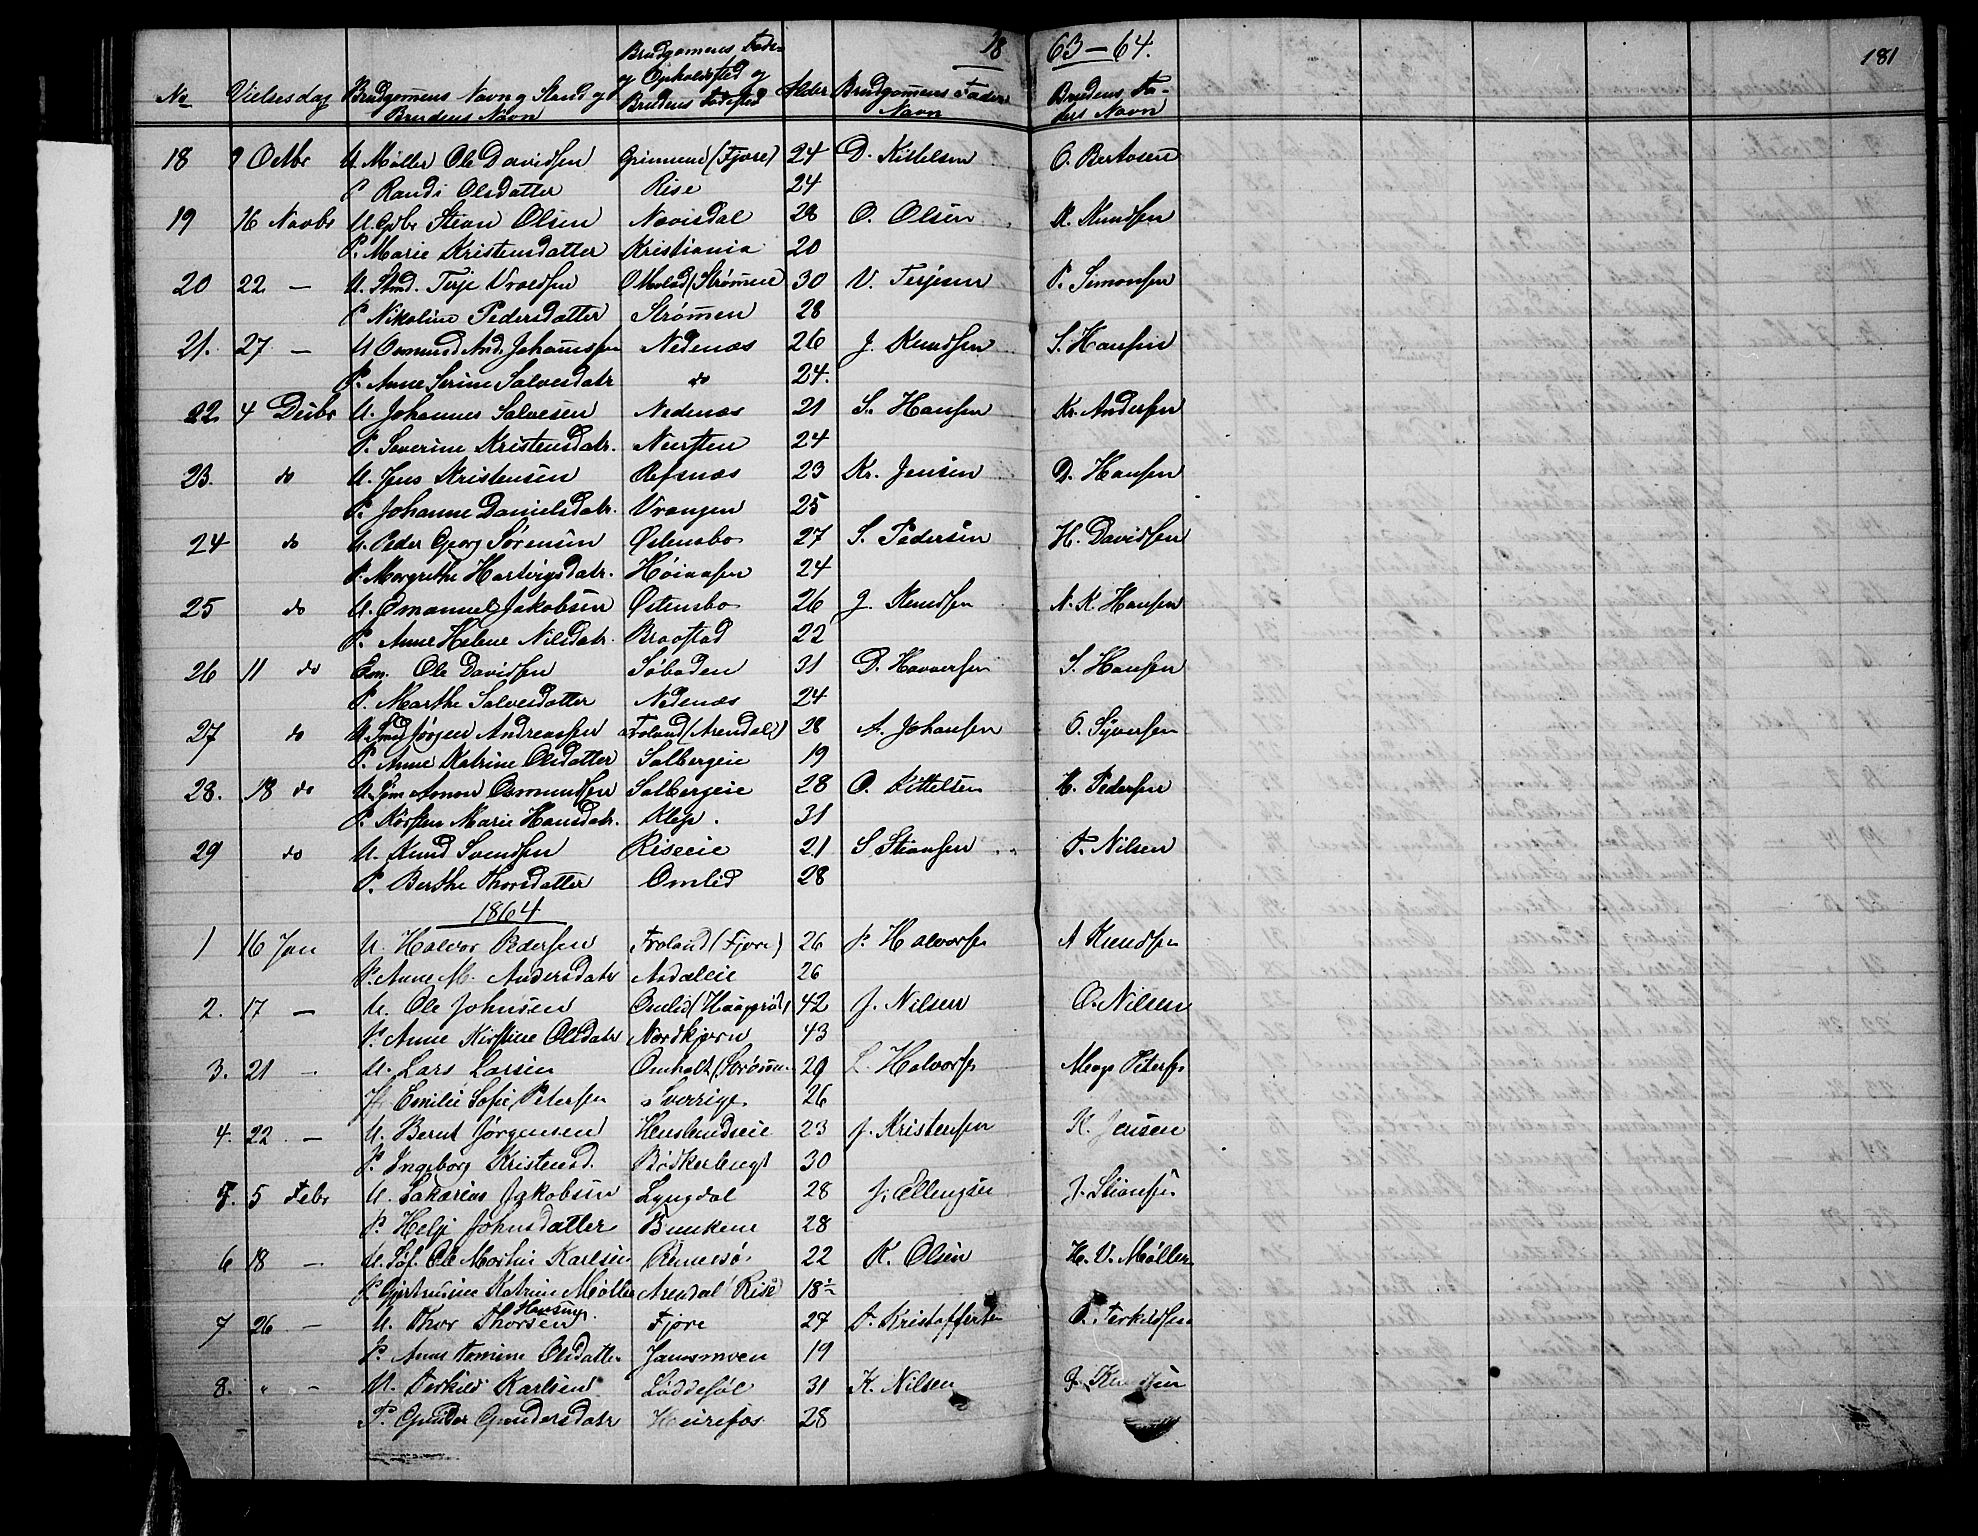 1863–64. 181
No Vielsesdag Brudgomens Navn og Stand og Brudens Navn Brudgomens Føde- og Opholdssted og Brudens Fødested Alder Brudgomens Faders Navn Brudens Faders Navn
18 9 Octbr U. Møller Ole Davidsen Grimene (Fjore) 24 D. Kittelsen O. Bertosen
P. Randi Olsdatter Rise 24
19 16 Novbr U. Gdbr Stean Olsen Navisdal 28 O. Olsen K. Knudsen
P. Marie Kristensdatter Kristiania 20
20 22 — U. Smd. Terje Vroldsen Omlad (Strømen) 30 V. Terjesen P. Simonsen
P. Nikoline Pedersdatter Strømen 28
21. 27 — U Osmund And. Johansen Nedenæs 26 J. Knudsen S. Hansen
P. Anne Serine Salvesdatr do 24.
22 4 Decbr U. Johannes Salvesen Nedenæs 21 S. Hansen Kr. Andersen
P. Severine Kristensdatr. Neersten 24
23. do U. Jens Kristensen Refsnæs 23 Kr. Jensen D. Hansen
P. Johanne Danielsdatr. Vrangen 25
24 do U. Peder Georg Sørensen Østensbo 27 S. Pedersen H. Davidsen
P. Margrethe Hartvigsdatr. Høiaasen 24
25 do U. Emanuel Jakobsen Østensbo 26 J. Knudsen N. K. Hansen
P. Anne Helene Nilsdatr. Braastad 22
26 11 do Em. Ole Davidsen Søboden 31 D. Haavorsen S. Hansen
P. Marthe Salvesdatter Nedenæs 24
27 do U. Smd Jørgen Andreassen Froland (Arendal) 28 A. Johansen O. Syversen
P. Anne Katrine Olsdatter Solbergeie 19
28. 18 do U. Tøm Aanon Osmundsen Solbergeie 28 O. Kittelsen H. Pedersen
P. Kirsten Marie Hansdatr. Klep. 31
29 do U. Knud Svendsen Riseeie 21 S. Stiansen T. Nilsen
P. Berthe Thorsdatter Omlid 28
1864
1 16 Jan U. Halvor Pedersen Froland (Fjore) 26 P. Halvorsen A Knudsen
P. Anne M. Andersdatr Asdaleie 26
2. 17 — U. Ole Johnsen Omlid (Haugerøl) 42 J. Nilsen O. Nilsen
P. Anne Kirstine Olsdatr Nordkjern 43
3. 21 — U. Lars Larsen Omholt (Strømen 29 L. Halvorsen Mags Petersen
Ff Emilie Sofie Petersen Sverrige 26
4. 22 — U. Bernt Jørgensen Hauslandseie 23 J. Kristensen K. Jensen
P. Ingeborg Kristensd. Bødkerlengt 30
5. 5 Febr U. Sakarias Jakobsen Lyngdal 28 J. Ellingsen J. Stiansen
P. Helje Johnsdatter Bunkene 28
6 18 — U. Tøf. Ole Martin Karlsen Remesø 22 K. Olsen H. V. Møller
P. Gjertrudine Katrine Møller Arendal Rise 18½
7 26 — U. Thor Thorsen Hansen Fjore 27 T. Kristoffersen O. Terkildsen
P. Anne Tomine Olsdatter Jansmoen 19
8. " — U. Terkild Karlsen Løddesøl 31 K. Nilsen G. Knudsen
P. Gunder Gundersdatr Heirefos 28